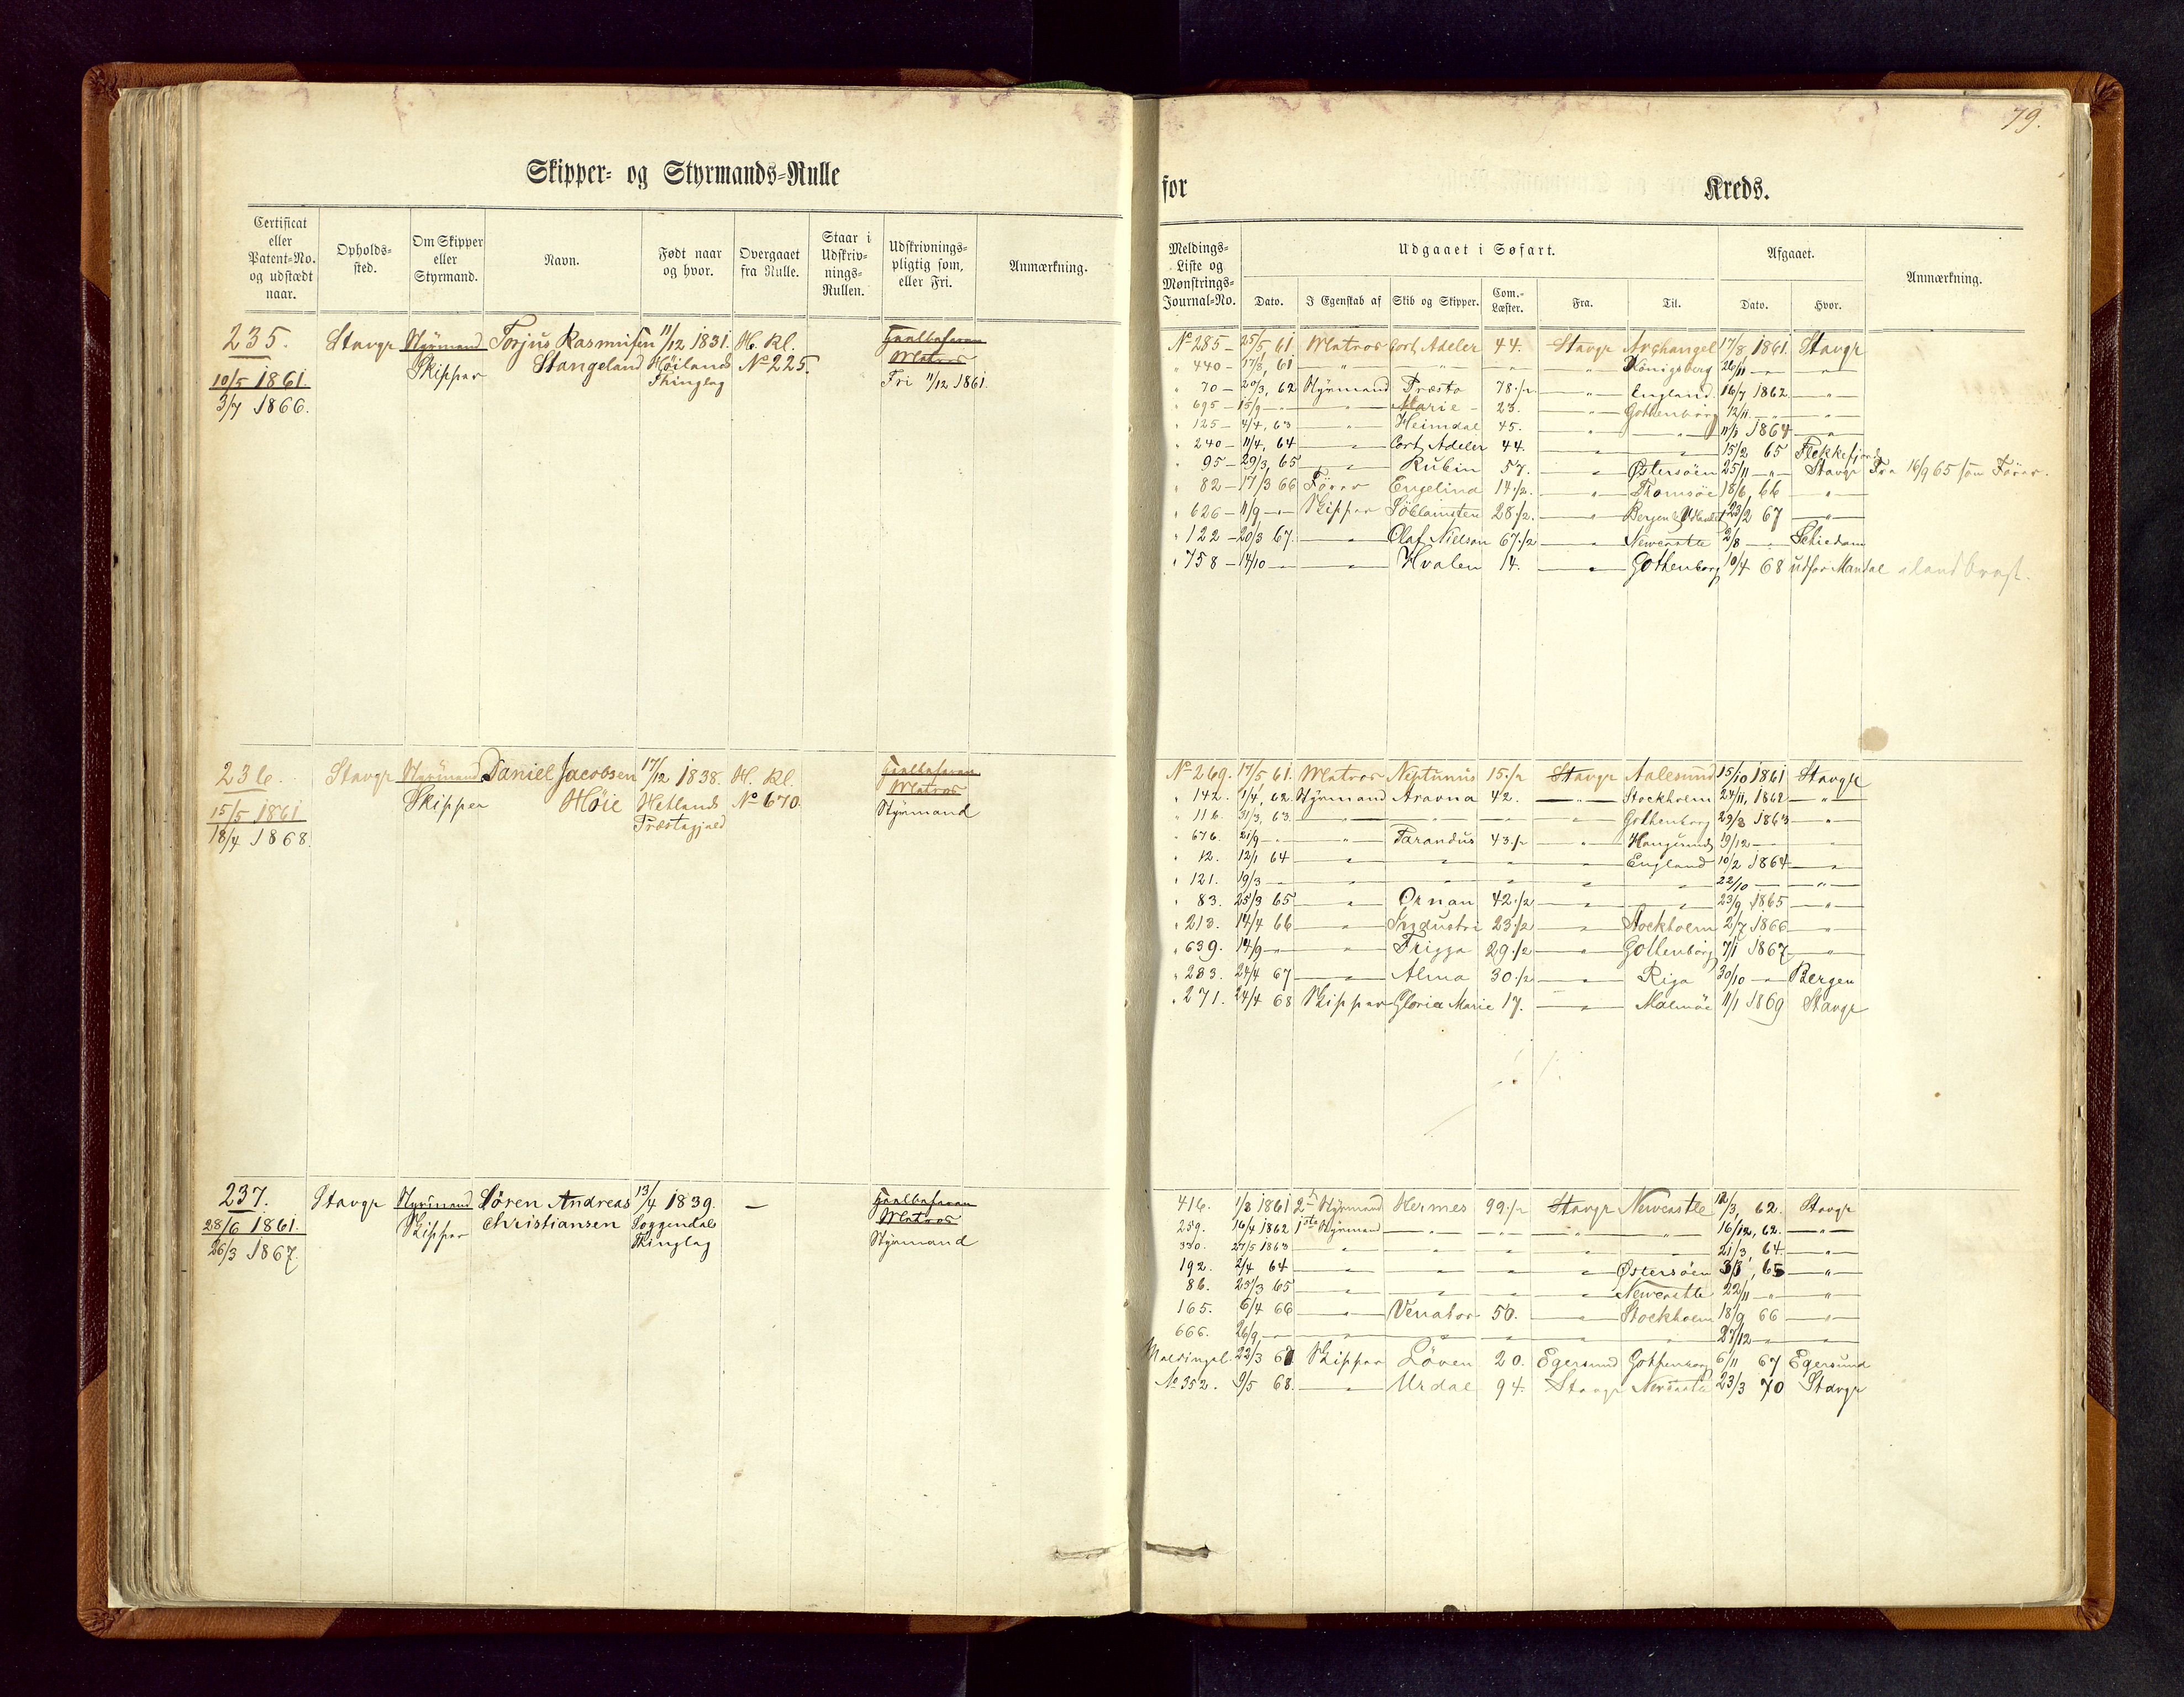 79.
Skipper- og Styrmands-Rulle for Kreds.
Certificat eller Patent-No. og udstædt naar.
Opholds-sted.
Om Skipper eller Styrmand.
Navn.
Født naar og hvor.
Overgaaet fra Rulle.
Staar i Udskriv-nings-Rullen.
Udskrivnings-pligtig som, eller Fri.
Anmærkning.
Meldings-Liste og Mønstrings-Journal-No.
Udgaaet i Søfart.
Afgaaet.
Anmærkning.
Dato. I Egenskab af Skib og Skipper. Com.-Læster. Fra. Til. Dato. Hvor.
235. Stavgr Styrmand Torjus Rasmussen 11/12 1831. H. Kl. Fuldbefaren
10/5 1861 Skipper Stangeland Höilands No 225. Matros
3/7 1866. Thinglag Fri 11/12 1861.
No 285 - 25/5, 61 Matros Cort Adeler 44. Stavgr Archangel 17/8, 1861. Stavgr
" 440 - 17/8, 61 " " " " Königsberg 26/11 " "
" 70 - 20/3, 62 Styrmand Præsto 78.1/2 " England 16/7 1862 "
" 695 - 15/9 " " Marie 23. " Gothenborg 12/11 " "
" 125 - 4/4, 63 " Heimdal 45. " " 11/1 1864 "
" 240 - 11/4, 64 " Cort Adeler 44. " " 15/2 65 Flekkefjord
" 95 - 29/3, 65 " Rubin 57. " Østersöen 25/11 " Stavgr Fra 16/9 65 som Förer.
" 82 - 17/3 66 Förer Engelina 14.1/2 " Thomsöe 18/6, 66 "
" 626 - 11/9 " Skipper 28.1/2 " Bergen 23/2 67 "
" 122 - 20/3 67. " Olaf Nielsen 67.1/2 " Newcastle 2/8 " Schiedam
" 758 - 14/10 " " Hvalen 14. " Gothenborg 10/4 68 udfor Mandal
236. Stavgr Styrmand Daniel Jacobsen 17/12 1838. H. Kl. Fuldbefaren
15/5 1861 Skipper Höie Hetlands No 670. Matros
18/4 1868. Præstegjæld Styrmand
No 269. 17/5 61. Matros Neptunus 15.1/2 Stavgr Aalesund 15/10 1861 Stavgr
" 142. 1/4, 62. Styrmand Aravna 42. " Stockholm 24/11, 1862 "
" 116. 31/3, 63. " " " " Gothenborg 29/8 1863 "
" 676. 21/9 " " Tarandus 43.1/2 " Haugesund 19/12 " "
" 12. 12/1 64 " " " " England 10/2 1864 "
" 121. 19/3 " " " " " " 22/10 " "
" 83. 25/3 65 " Ornan 42.1/2 " " 23/9 1865 "
" 213. 14/4 66 " Industri 23.1/2 " Stockholm 2/7 1866 "
" 639. 14/9 " " Frigga 29.1/2 " Gothenborg 7/1 1867 "
" 283. 24/4 67 " Alma 30.1/2 " Riga 30/10 " Bergen
" 271. 24/4 68 Skipper Gloria Marie 17. " Malmöe 11/1 1869 Stavgr
237. Stavgr Styrmand Sören Andreas 13/4 1839. — Fuldbefaren
28/6 1861. Skipper Christiansen Soggendals Matros
26/3 1867. Thinglag Styrmand
416. 1/8 1861 2 Styrmand Hermes 99.1/2 Stavgr Newcastle 12/3, 62. Stavgr
259. 16/4 1862 1ste Styrmand " " " " 16/12, 62. "
330. 27/5 1863 " " " " " 21/3, 64. "
192. 2/4 64 " " " " Østersöen 3/1, 65 "
86. 25/3 65 " " " " Newcastle 22/11 " "
165. 6/4 66 " Venator 50. " Stockholm 18/9 66 "
666. 26/9 " " " " " " 27/12 " "
Meldingsl. 22/3 67 Skipper Löven 20. Egersund Gothenborg 6/11 67 Egersund
No 352. 9/5 68. " Urdal 94. Stavgr Newcastle 23/3 70 Stavgr